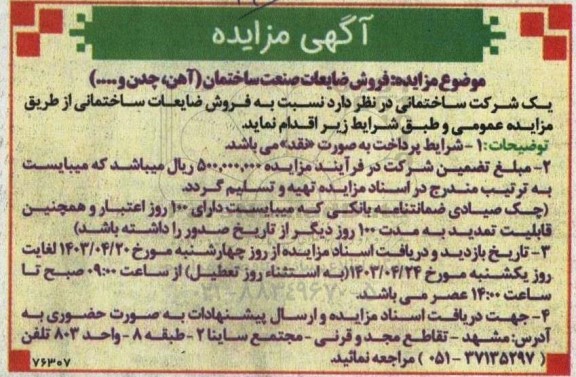 آگهی مزایده
موضوع مزایده: فروش ضایعات صنعت ساختمان (آهن، چدن و ....)
یک شرکت ساختمانی در نظر دارد نسبت به فروش ضایعات ساختمانی از طریق
مزایده عمومی و طبق شرایط زیر اقدام نماید.
توضیحات: ۱- شرایط پرداخت به صورت «نقد» می باشد.
۲- مبلغ تضمین شرکت در فرآیند مزایده ۵۰۰,۰۰۰,۰۰۰ ریال میباشد که میبایست
به ترتیب مندرج در اسناد مزایده تهیه و تسلیم گردد.
(چک صیادی ضمانتنامه بانکی که میبایست دارای ۱۰۰ روز اعتبار و همچنین
قابلیت تمدید به مدت ۱۰۰ روز دیگر از تاریخ صدور را داشته باشد)
۳- تاریخ بازدید و دریافت اسناد مزایده از روز چهارشنبه مورخ ۱۴۰۳/۰۴/۲۰ لغایت
روز یکشنبه مورخ ۱۴۰۳/۰۴/۲۴ (به استثناء روز تعطیل) از ساعت ۰۹:۰۰ صبح تا
ساعت ۱۴:۰۰ عصر می باشد.
۴- جهت دریافت اسناد مزایده و ارسال پیشنهادات به صورت حضوری به
آدرس: مشهد - تقاطع مجد و قرنی - مجتمع ساینا ۲ - طبقه ۸ - واحد ۸۰۳ تلفن
( ۳۷۱۳۵۲۹۷ - ۰۵۱ ) مراجعه نمائید.
۷۶۳۰۷